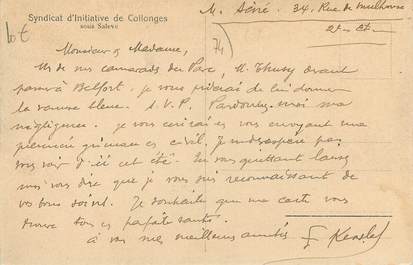 Syndicat d'Initiative de Collonges
sous Salève
M. Sévié . 34, Rue de Mulhouse
2e Et.
74
Monsieur & Madame,
Un de mes camarades du Parc, M. Thusy devant
passer à Belfort, je vous prierai de lui donner
la vareuse bleue. S.V.P. Pardonnez-moi ma
négligence. je vous écrirai en vous envoyant une
en civil. Je ne désespère pas
vous voir d'ici cet été. En vous quittant laissez
moi vous dire que je vous suis reconnaissant de
vos bons soins. Je souhaite que ma carte vous
trouve tous en parfaite santé.
à vous mes meilleures amitiés